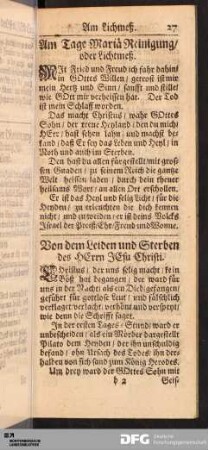 Am Lichmeß. 27
Am Tage Mariä Reinigung/
oder Lichtmeß.
MIt Fried und Freud ich fahr dahin/
in GOttes Willen/ getrost ist mir
mein Hertz und Sinn/ sanfft und stille/
wie GOtt mir verheissen hat. Der Tod
ist mein Schlaff worden.
Das macht Christus/ wahr GOttes
Sohn/ der treue Heyland/ den du mich/
HErr/ hast sehen lahn/ und machst be-
kand/ daß Er sey das Leben und Heyl/ in
Noth und auch im Sterben.
Den hast du allen fürgestellt mit gros-
sen Gnaden/ zu seinem Reich die gantz
Welt heissen laden/ durch dein theuer
heilsams Wort/ an allen Ort erschollen.
Er ist das Heyl und selig Licht/ für die
Heyden/ zu erleuchten die dich kennen
nicht/ und zu weiden/ er ist deins Volcks
Israel der Preiß/ Ehr/ Freud und Wonne.
Von dem Leiden und Sterben
des HErrn JEsu Christi.
CHristus/ der uns selig macht/ kein
Böß hat begangen/ der ward für
uns in der Nacht/ als ein Dieb gefangen/
geführt für gottlose Leut/ und fälschlich
verklaget/ verlacht/ verhönt und verspeyt/
wie denn die Schrifft saget.
In der ersten Tages-Stund/ ward er
unbescheiden/ als ein Mörder dargestellt
Pilato dem Heyden/ der ihn unschuldig
befand/ ohn Ursach des Todes/ ihn der-
halben von sich sand/ zum König Herodes.
Um drey ward der GOttes Sohn mit
d 2 Geis-
DFG